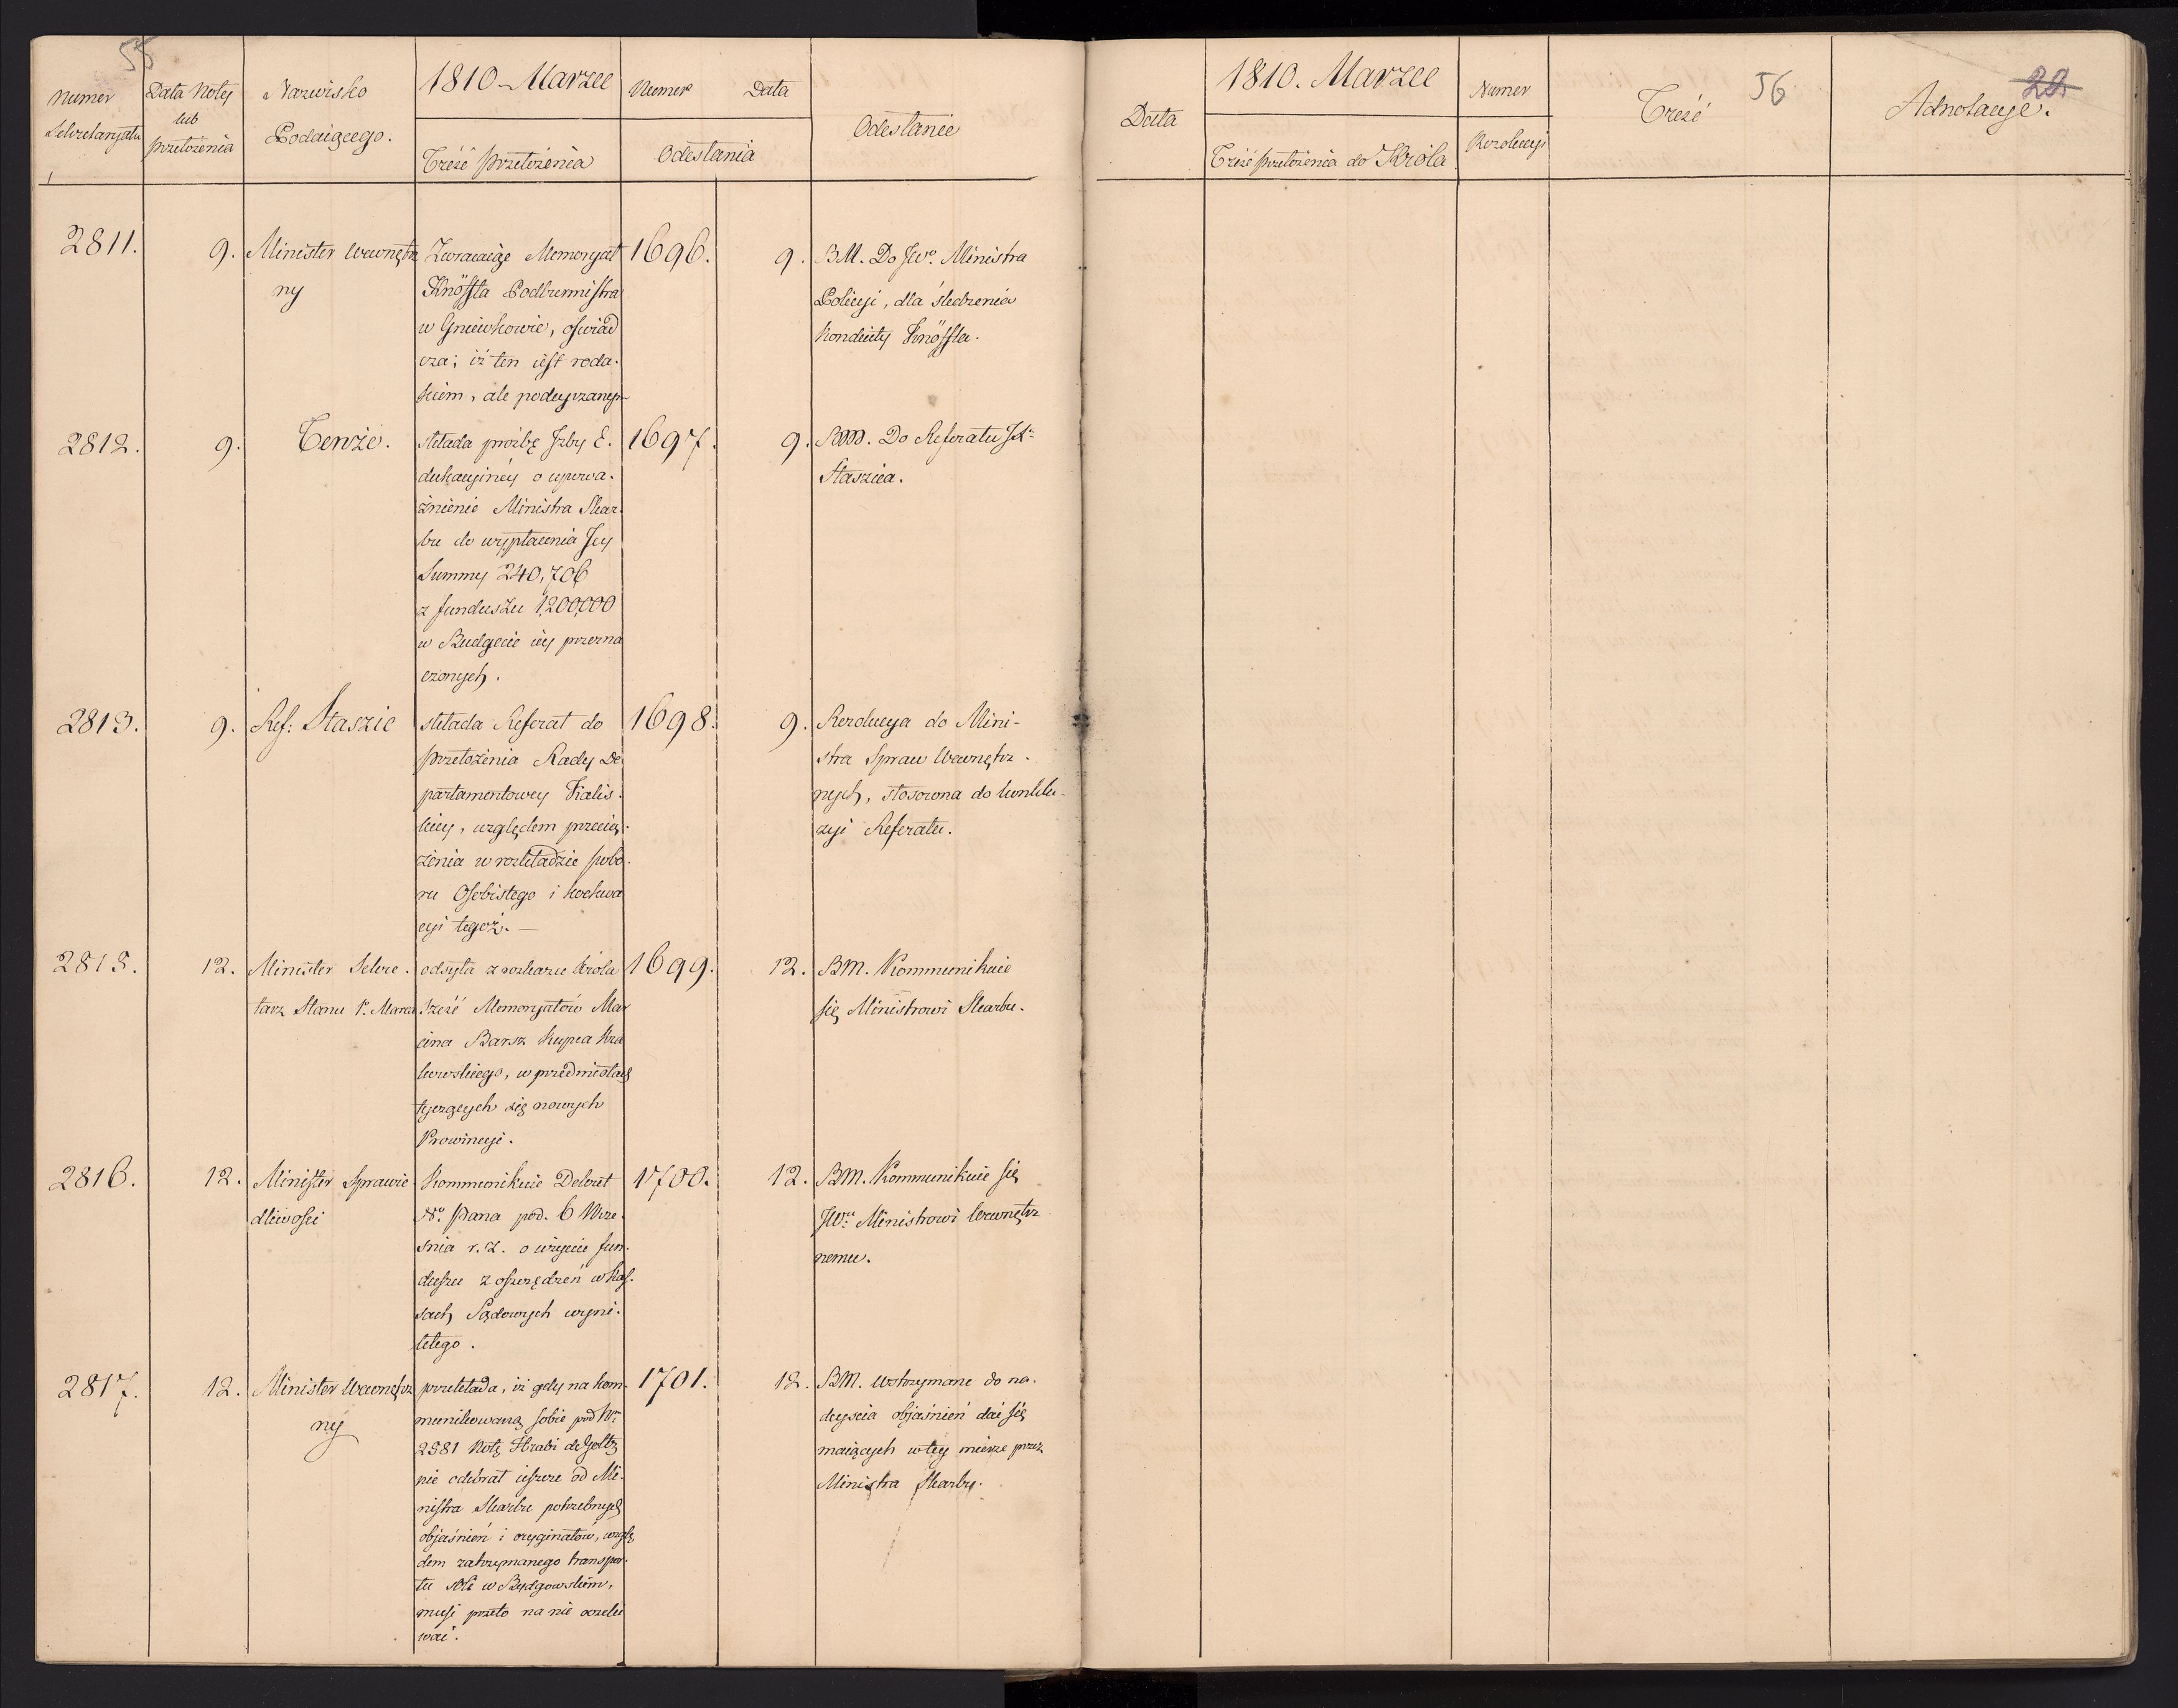 55
Numer
Sekretaryatu
Data Noty
lub
przełożenia
Nazwisko
Podaiącego.
1810 - Marzec
Treść przełożenia
Numer
Data
Odesłania
Odesłanie
2811.
9.
Minister Wewnętrz
ny
Zwracaiąc Memoryał
Knöffla Podburmistrza
w Gniewkowie, oświad
cza; iż ten iest roda-
kiem, ale podeyrzanym
1696.
9.
BM. Do JWo. Ministra
Policyi, dla śledzenia
konduity Knöffla.
2812.
9.
Tenże.
składa prośbę Izby E-
dukacyinéy o upowa-
żnienie Ministra Skar-
bu do wypłacenia Jey
Summy 240,706
z funduszu 1,200,000
w Budgecie iéy przezna
czonych.
1697.
9.
BM. Do Referatu
Staszica.
2813.
9.
Ref: Staszic
składa Referat do
przełożenia Rady De
partamentowey Kalis-
kiey, względem przecią-
żenia w rozkładzie pobo-
ru Osobistego i
cyi tegoż. —
1698.
9.
Rezolucya do Mini-
stra Spraw Wewnętrz-
nych, stosowna do konklu-
zyi Referatu.
2815.
12.
Minister Sekre-
tarz Stanu
odsyła z rozkazu Króla
sześć Memoryałów Mar
cina Barsz kupca Kra
kowskiego, w przedmiotach
tyczących się nowych
Prowincyi.
1699.
12.
BM. Kommunikuie
się Ministrowi Skarbu.
2816.
12.
Minister Sprawie
dliwości
Kommunikuie Dekret
N. Pana pod. 6 Wrze-
śnia r. z. o użycie fun-
duszu z oszczędzeń w Kas-
sach Sądowych wyni-
kłego.
1700.
12.
BM. Kommunikuie się
JWu. Ministrowi Wewnętrz
nemu.
2817.
12.
Minister Wewnętrz
ny
przekłada, iż gdy na kom-
munikowaną sobie pod Nr.
2581 Notę Hrabi de Goltz
nie odebrał ieszcze od Mi-
nistra Skarbu potrzebnych
objaśnień i oryginałów, wzglę
dem zatrzymanego transpor-
tu soli w Bydgowskiém,
musi przeto na nie oczeki
wać.
1701.
12.
BM. wstrzymane do na-
deyścia objaśnień dać się
maiących w tey mierze przez
Ministra Skarbu.
Data
1810. Marzec
Treść przełożenia do Króla
Numer
Rezolucyi
Treść
56
Adnotacye.
29.